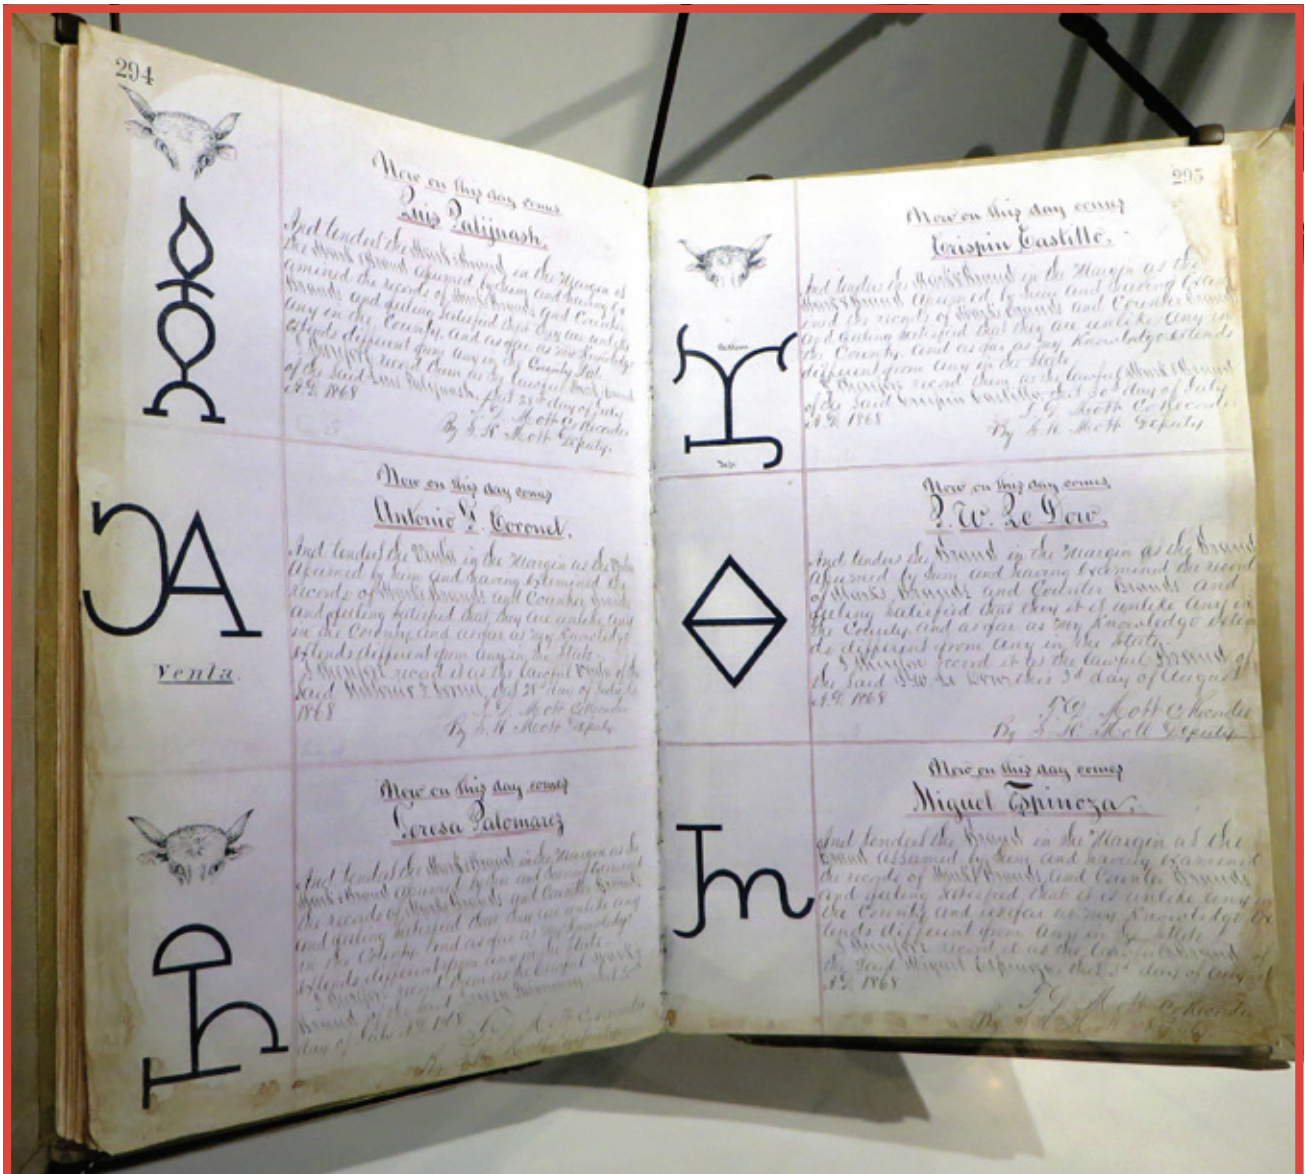 294
Now on this day comes
Luis Patijuash.
And tenders the Mark & Brand in the Margin as
the Mark & Brand assumed by him and having ex
amined the records of Marks Brands and Counter
Brands and feeling satisfied that they are unlike
any in the County. and as far as my Knowledge
extends different from any in the County State
I therefore record them as the lawful Mark & Brand
of the said Luis Patijuash, this 28th day of July
A.D. 1868
T. D. Mott Co Recorder
By S. H. Mott Deputy.
Now on this day comes
Antonio F. Coronel.
And tenders the Venta in the Margin as the Venta
assumed by him and having examined the
records of Marks Brands and Counter Brands
and feeling satisfied that they are unlike any
in the County and as far as my Knowledge
extends different from any in the State.
I therefore record it as the lawful Venta of the
said Antonio F. Coronel, this 28th day of July
1868
T. D. Mott Co Recorder
By S. H. Mott Deputy.
Venta.
Now on this day comes
Teresa Palomarez
And tenders the Mark & Brand in the Margin as the
Mark & Brand assumed by
the records of Marks Brands and Counter Brands
and feeling satisfied that they are unlike any
in the County. and as far as my Knowledge
extends different from any in the State.
I therefore record them as the lawful Mark &
Brand of the said Teresa Palomarez
day of A.D. 1868
T. D. Mott Co Recorder
By S. H. Mott Deputy
295
Now on this day comes
Crispin Castillo.
And tenders the Mark & Brand in the Margin as the
Mark & Brand assumed by him and having exam
ined the records of Marks Brands and Counter Brands
and feeling satisfied that they are unlike any in
the County. and as far as my Knowledge extends
different from any in the State.
I therefore record them as the lawful Mark & Brand
of the said Crispin Castillo this 30th day of July
A.D. 1868
T. D. Mott Co Recorder
By S. H. Mott Deputy.
Now on this day comes
P. W. Le Dow.
And tenders the Brand in the Margin as the Brand
assumed by him and having examined the record
of Marks Brands and Counter Brands and
feeling satisfied that it is unlike any in
the County. and as far as my Knowledge exten
ds different from any in the State.
I therefore record it as the lawful Brand of
the said P. W. Le Dow this 3d day of August
A.D. 1868
T. D. Mott Co Recorder
By S. H. Mott Deputy
Now on this day comes
Miguel Espinoza.
And tenders the Brand in the Margin as the
Brand assumed by him and having examined
the records of Marks Brands and Counter Brands
and feeling satisfied that it is unlike any in
the County and as far as my Knowledge ex
tends different from any in the State
I therefore record it as the lawful Brand of
the said Miguel Espinoza, this 3d day of August
A.D. 1868
T. D. Mott Co Recorder
By S. H. Mott Deputy